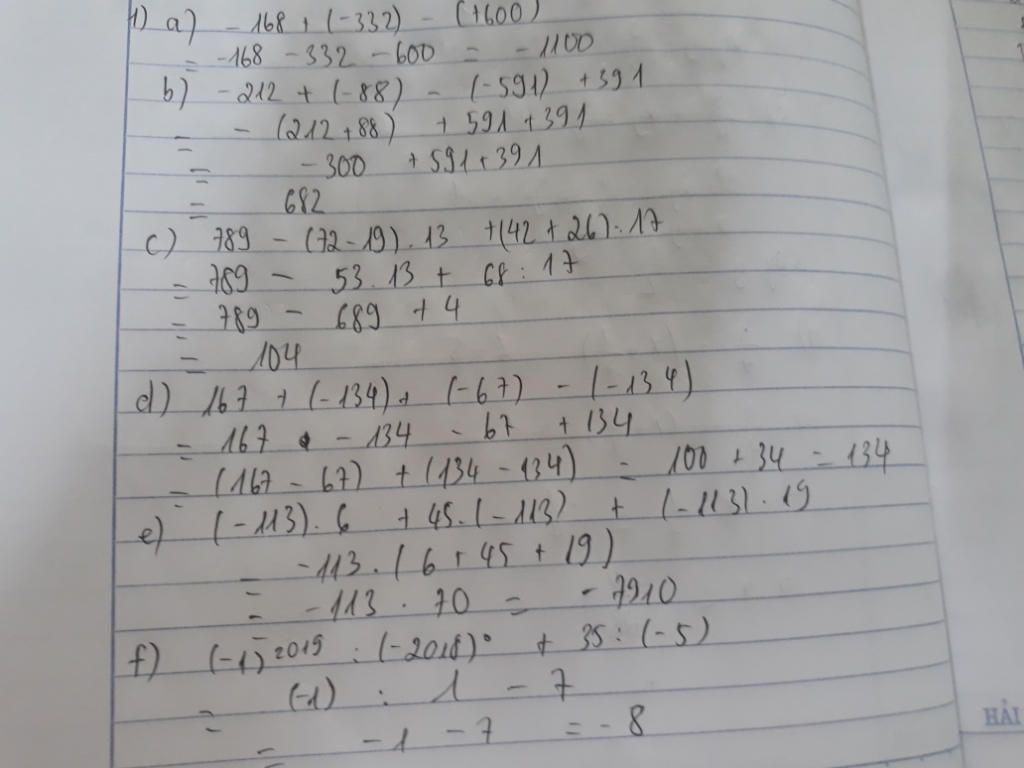 1) a) - 168 + (-332) - (+600)
= -168 - 332 - 600 = -1100
b) -212 + (-88) - (-591) + 391
= - (212 + 88) + 591 + 391
= -300 + 591 + 391
= 682
c) 789 - (72 - 19) . 13 + (42 + 26) : 17
= 789 - 53.13 + 68 : 17
= 789 - 689 + 4
= 104
d) 167 + (-134) + (-67) - (-134)
= 167 - 134 - 67 + 134
= (167 - 67) + (134 - 134) = 100 + 34 = 134
e) (-113) . 6 + 45.(-113) + (-113) . 19
= -113 . (6 + 45 + 19)
= -113 . 70 = -7910
f) (-1)²⁰¹⁹ : (-2018)⁰ + 35 : (-5)
= (-1) : 1 - 7
= -1 - 7 = -8
HẢI